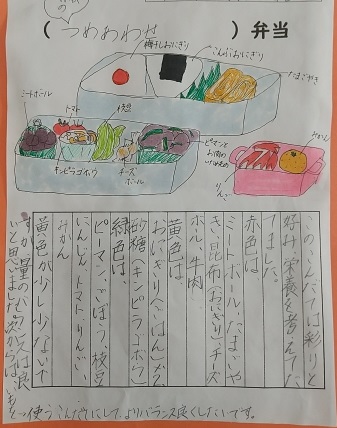 の
(つめあわせ)弁当
梅干しおにぎり
こんぶおにぎり
たまごやき
ミートボール
トマト
枝豆
キンピラゴボウ
チーズ
ボール
ピーマンと
お肉の
いためもの
りんご
みかん
のこんだては彩りと
好み、栄養を考えて
つました。
赤色は
ミートボール、たまごや
き、昆布(おにぎり)、チーズ
ボール、牛肉
黄色は
おにぎり(ごはん)×2
砂糖(キンピラゴボウ)
緑色は、
ピーマン、ごぼう、枝豆
にんじん、トマト、りんご、
みかん
黄色が少し少ないで
すが、量のバランスは良
いと思いました。次からは、も
っと使うこんだてにして、よりバランス良くしたいです。